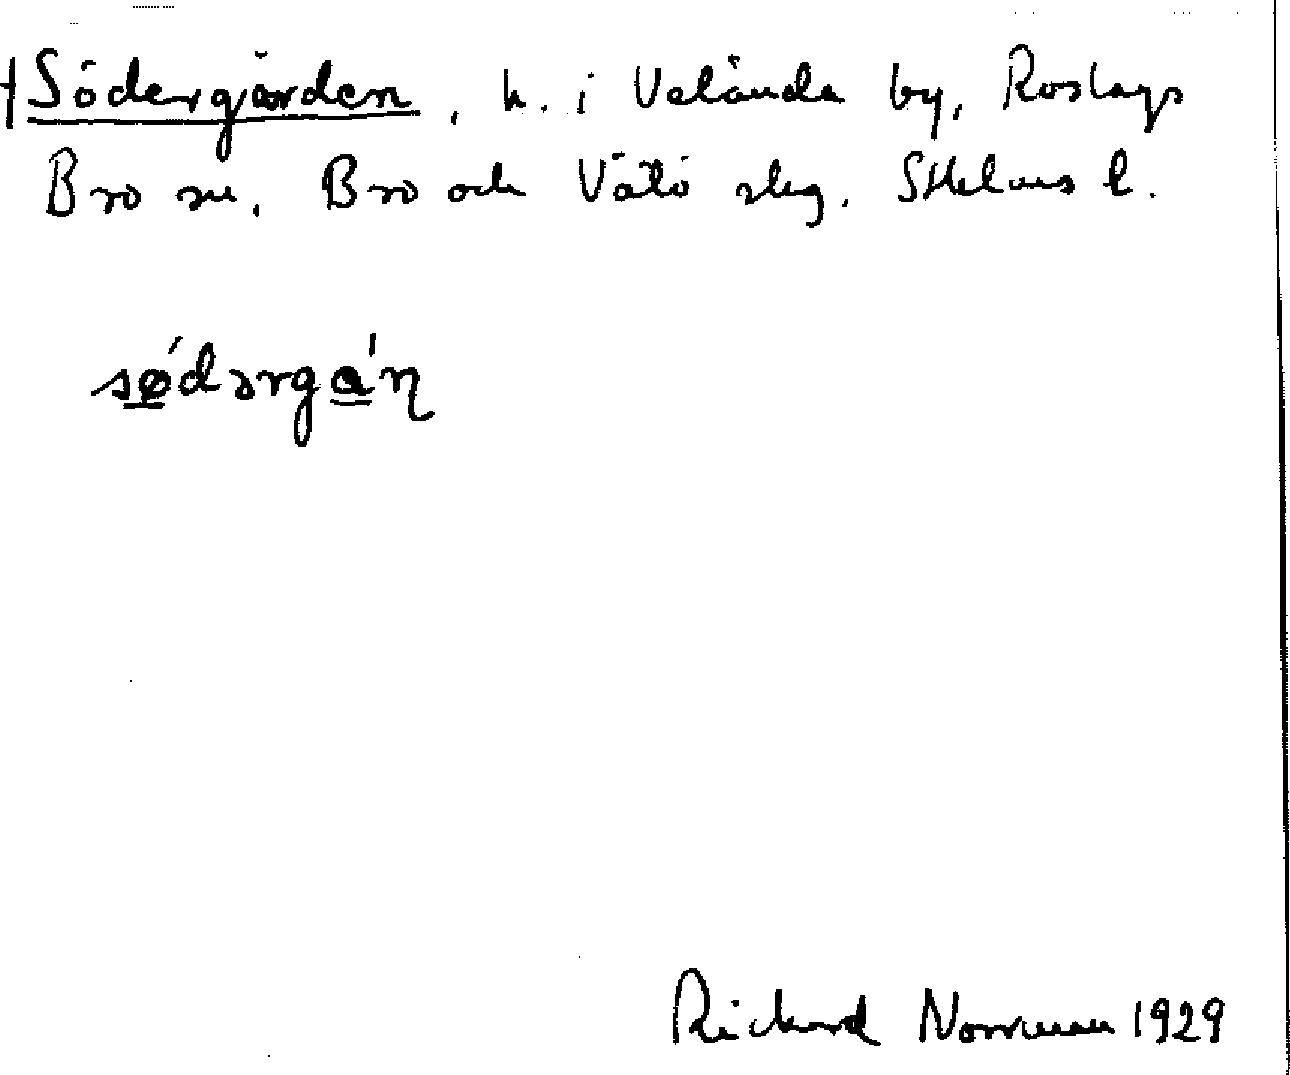 †Södergården, h. i Veländа by, Roslags
Bro sn. Bro och Vätö skg. Sthlms l.
sǿdərgá'ɳ
Rickard Norrman 1929